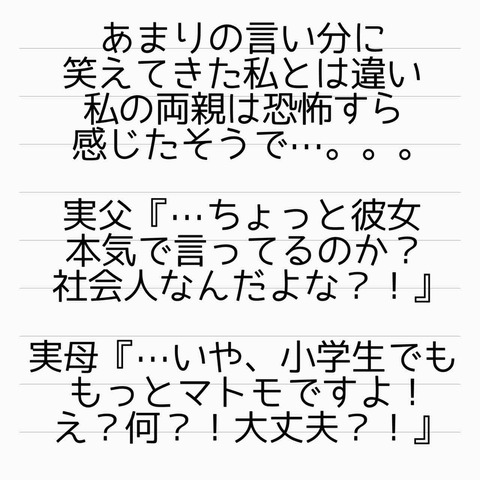 あまりの言い分に
笑えてきた私とは違い
私の両親は恐怖すら
感じたそうで…。。。
実父『…ちょっと彼女
本気で言ってるのか？
社会人なんだよな？！』
実母『…いや、小学生でも
もっとマトモですよ！
え？何？！大丈夫？！』